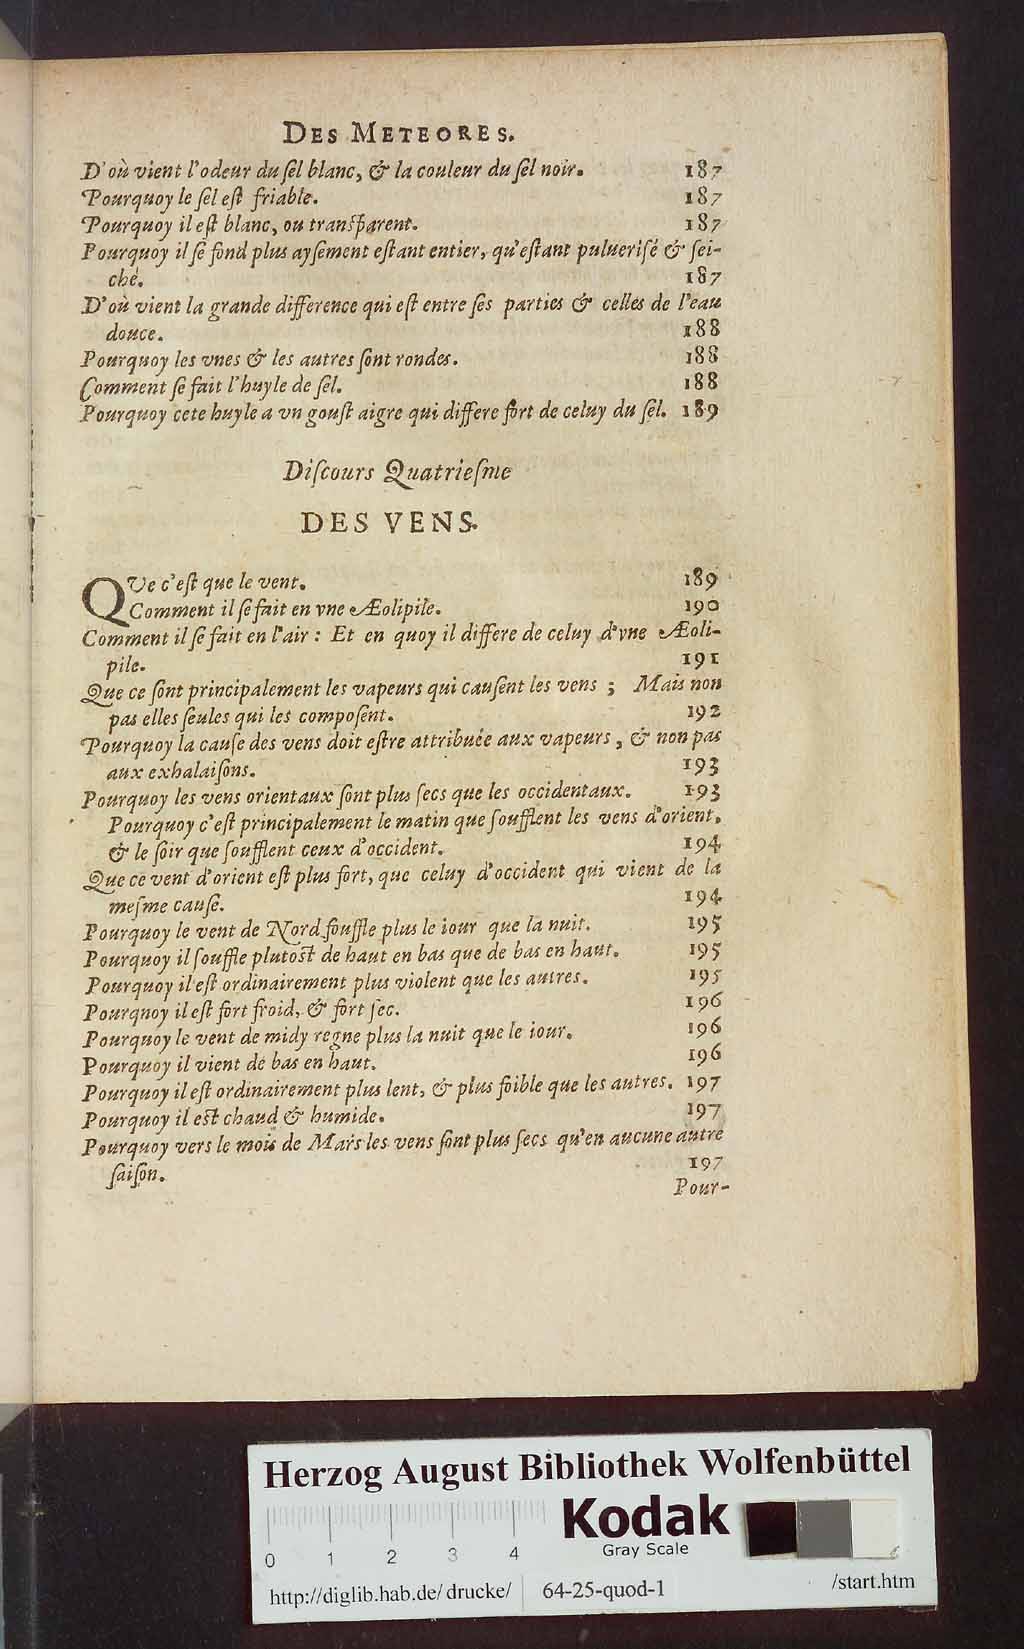 DES METEORES.
D'où vient l'odeur du ſel blanc, & la couleur du ſel noir. 187
Pourquoy le ſel eſt friable. 187
Pourquoy il eſt blanc, ou tranſparent. 187
Pourquoy il ſe fond plus ayſement eſtant entier, qu'eſtant puluerisé & ſei-
ché. 187
D'où vient la grande difference qui eſt entre ſes parties & celles de l'eau
douce. 188
Pourquoy les vnes & les autres ſont rondes. 188
Comment ſe fait l'huyle de ſel. 188
Pourquoy cete huyle a vn gouſt aigre qui differe fort de celuy du ſel. 189
Diſcours Quatrieſme
DES VENS.
QVe c'eſt que le vent. 189
Comment il ſe fait en vne Æolipile. 190
Comment il ſe fait en l'air : Et en quoy il differe de celuy d'vne Æoli-
pile. 191
Que ce ſont principalement les vapeurs qui cauſent les vens ; Mais non
pas elles ſeules qui les compoſent. 192
Pourquoy la cauſe des vens doit eſtre attribuée aux vapeurs, & non pas
aux exhalaiſons. 193
Pourquoy les vens orientaux ſont plus ſecs que les occidentaux. 193
Pourquoy c'eſt principalement le matin que ſoufflent les vens d'orient,
& le ſoir que ſoufflent ceux d'occident. 194
Que ce vent d'orient eſt plus fort, que celuy d'occident qui vient de la
meſme cauſe. 194
Pourquoy le vent de Nord ſouffle plus le iour que la nuit. 195
Pourquoy il ſouffle plutoſt de haut en bas que de bas en haut. 195
Pourquoy il eſt ordinairement plus violent que les autres. 195
Pourqnoy il eſt fort froid, & fort ſec. 196
Pourquoy le vent de midy regne plus la nuit que le iour. 196
Pourquoy il vient de bas en haut. 196
Pourquoy il eſt ordinairement plus lent, & plus foible que les autres. 197
Pourquoy il eſt chaud & humide. 197
Pourquoy vers le mois de Mars les vens ſont plus ſecs qu'en aucune autre
ſaiſon. 197
Pour-
Herzog August Bibliothek Wolfenbüttel
Kodak
Gray Scale
0 1 2 3 4
6
http://diglib.hab.de/drucke/ 64-25-quod-1 /start.htm